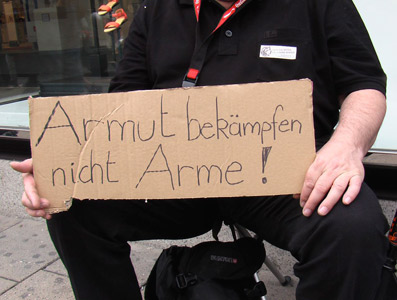 Armut bekämpfen
nicht Arme !